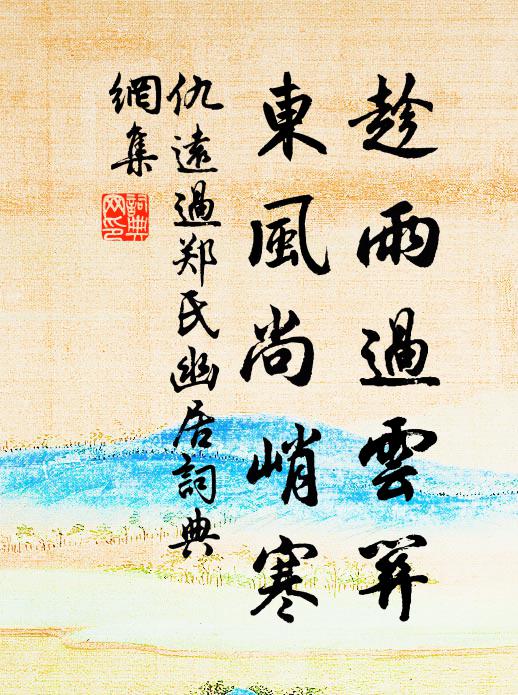 趁雨過雲開
東風尚峭寒
仇遠過郑氏幽居詞典
網集
詞典网印